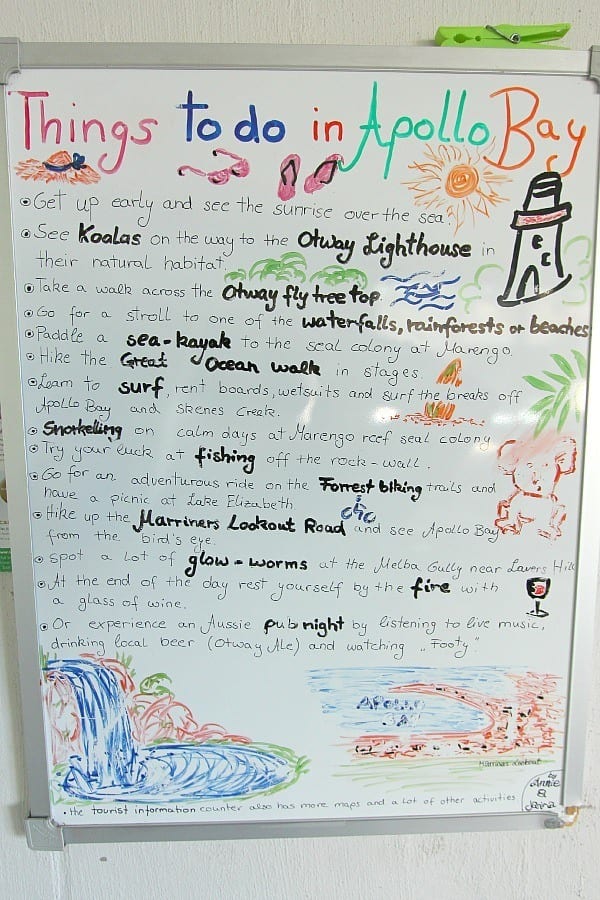 Things to do in Apollo Bay
• Get up early and see the sunrise over the sea.
• See Koalas on the way to the Otway Lighthouse in
their natural habitat
• Take a walk across the Otway fly tree top.
• Go for a stroll to one of the waterfalls, rainforests or beaches
• Paddle a sea-kayak to the seal colony at Marengo.
• Hike the Great Ocean walk in stages.
• Learn to surf, rent boards, wetsuits and surf the breaks off
Apollo Bay and Skenes Creek.
• Snorkelling on calm days at Marengo reef seal colony
• Try your luck at fishing off the rock-wall.
• Go for an adventurous ride on the Forrest biking trails and
have a picnic at Lake Elizabeth
• Hike up the Marriners Lookout Road and see Apollo Bay
from the bird's eye.
• Spot a lot of glow-worms at the Melba Gully near Lavers Hill
• At the end of the day rest yourself by the fire with
a glass of wine.
• Or experience an Aussie pub night by listening to live music,
drinking local beer (Otway Ale) and watching „Footy"
APOLLO
BAY
Marriners Lookout
by
Annie
&
• the tourist information counter also has more maps and a lot of other activities